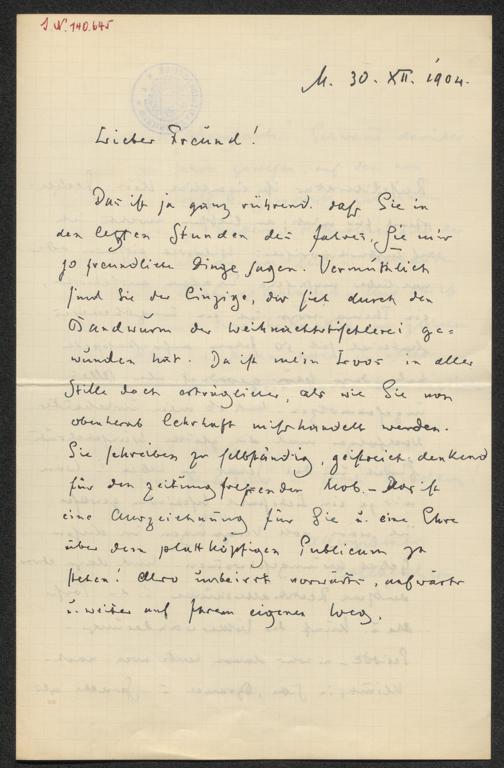 J.N. 140.645
M. 30. XII. 1904.
Lieber Freund!
Das ist ja ganz rührend, dass Sie in
den letzten Stunden des Jahres, Sie mir
so freundliche Dinge sagen. Vermuthlich
sind Sie der Einzige, der sich durch den
Bandwurm der Weihnachtstischlerei ge=
wunden hat. Da ist mein Loos in aller
Stille doch erträglicher, als wie Sie von
obenherab lehrhaft misshandelt werden.
Sie schreiben zu selbständig, geistreich denkend
für den zeitungfressenden Mob. – Das ist
eine Auszeichnung für Sie u. eine Ehre
über dem plattköpfigen Publicum zu
stehen! Also unbeirrt vorwärts, aufwärts
u. weiter auf Ihrem eigenen Weg.